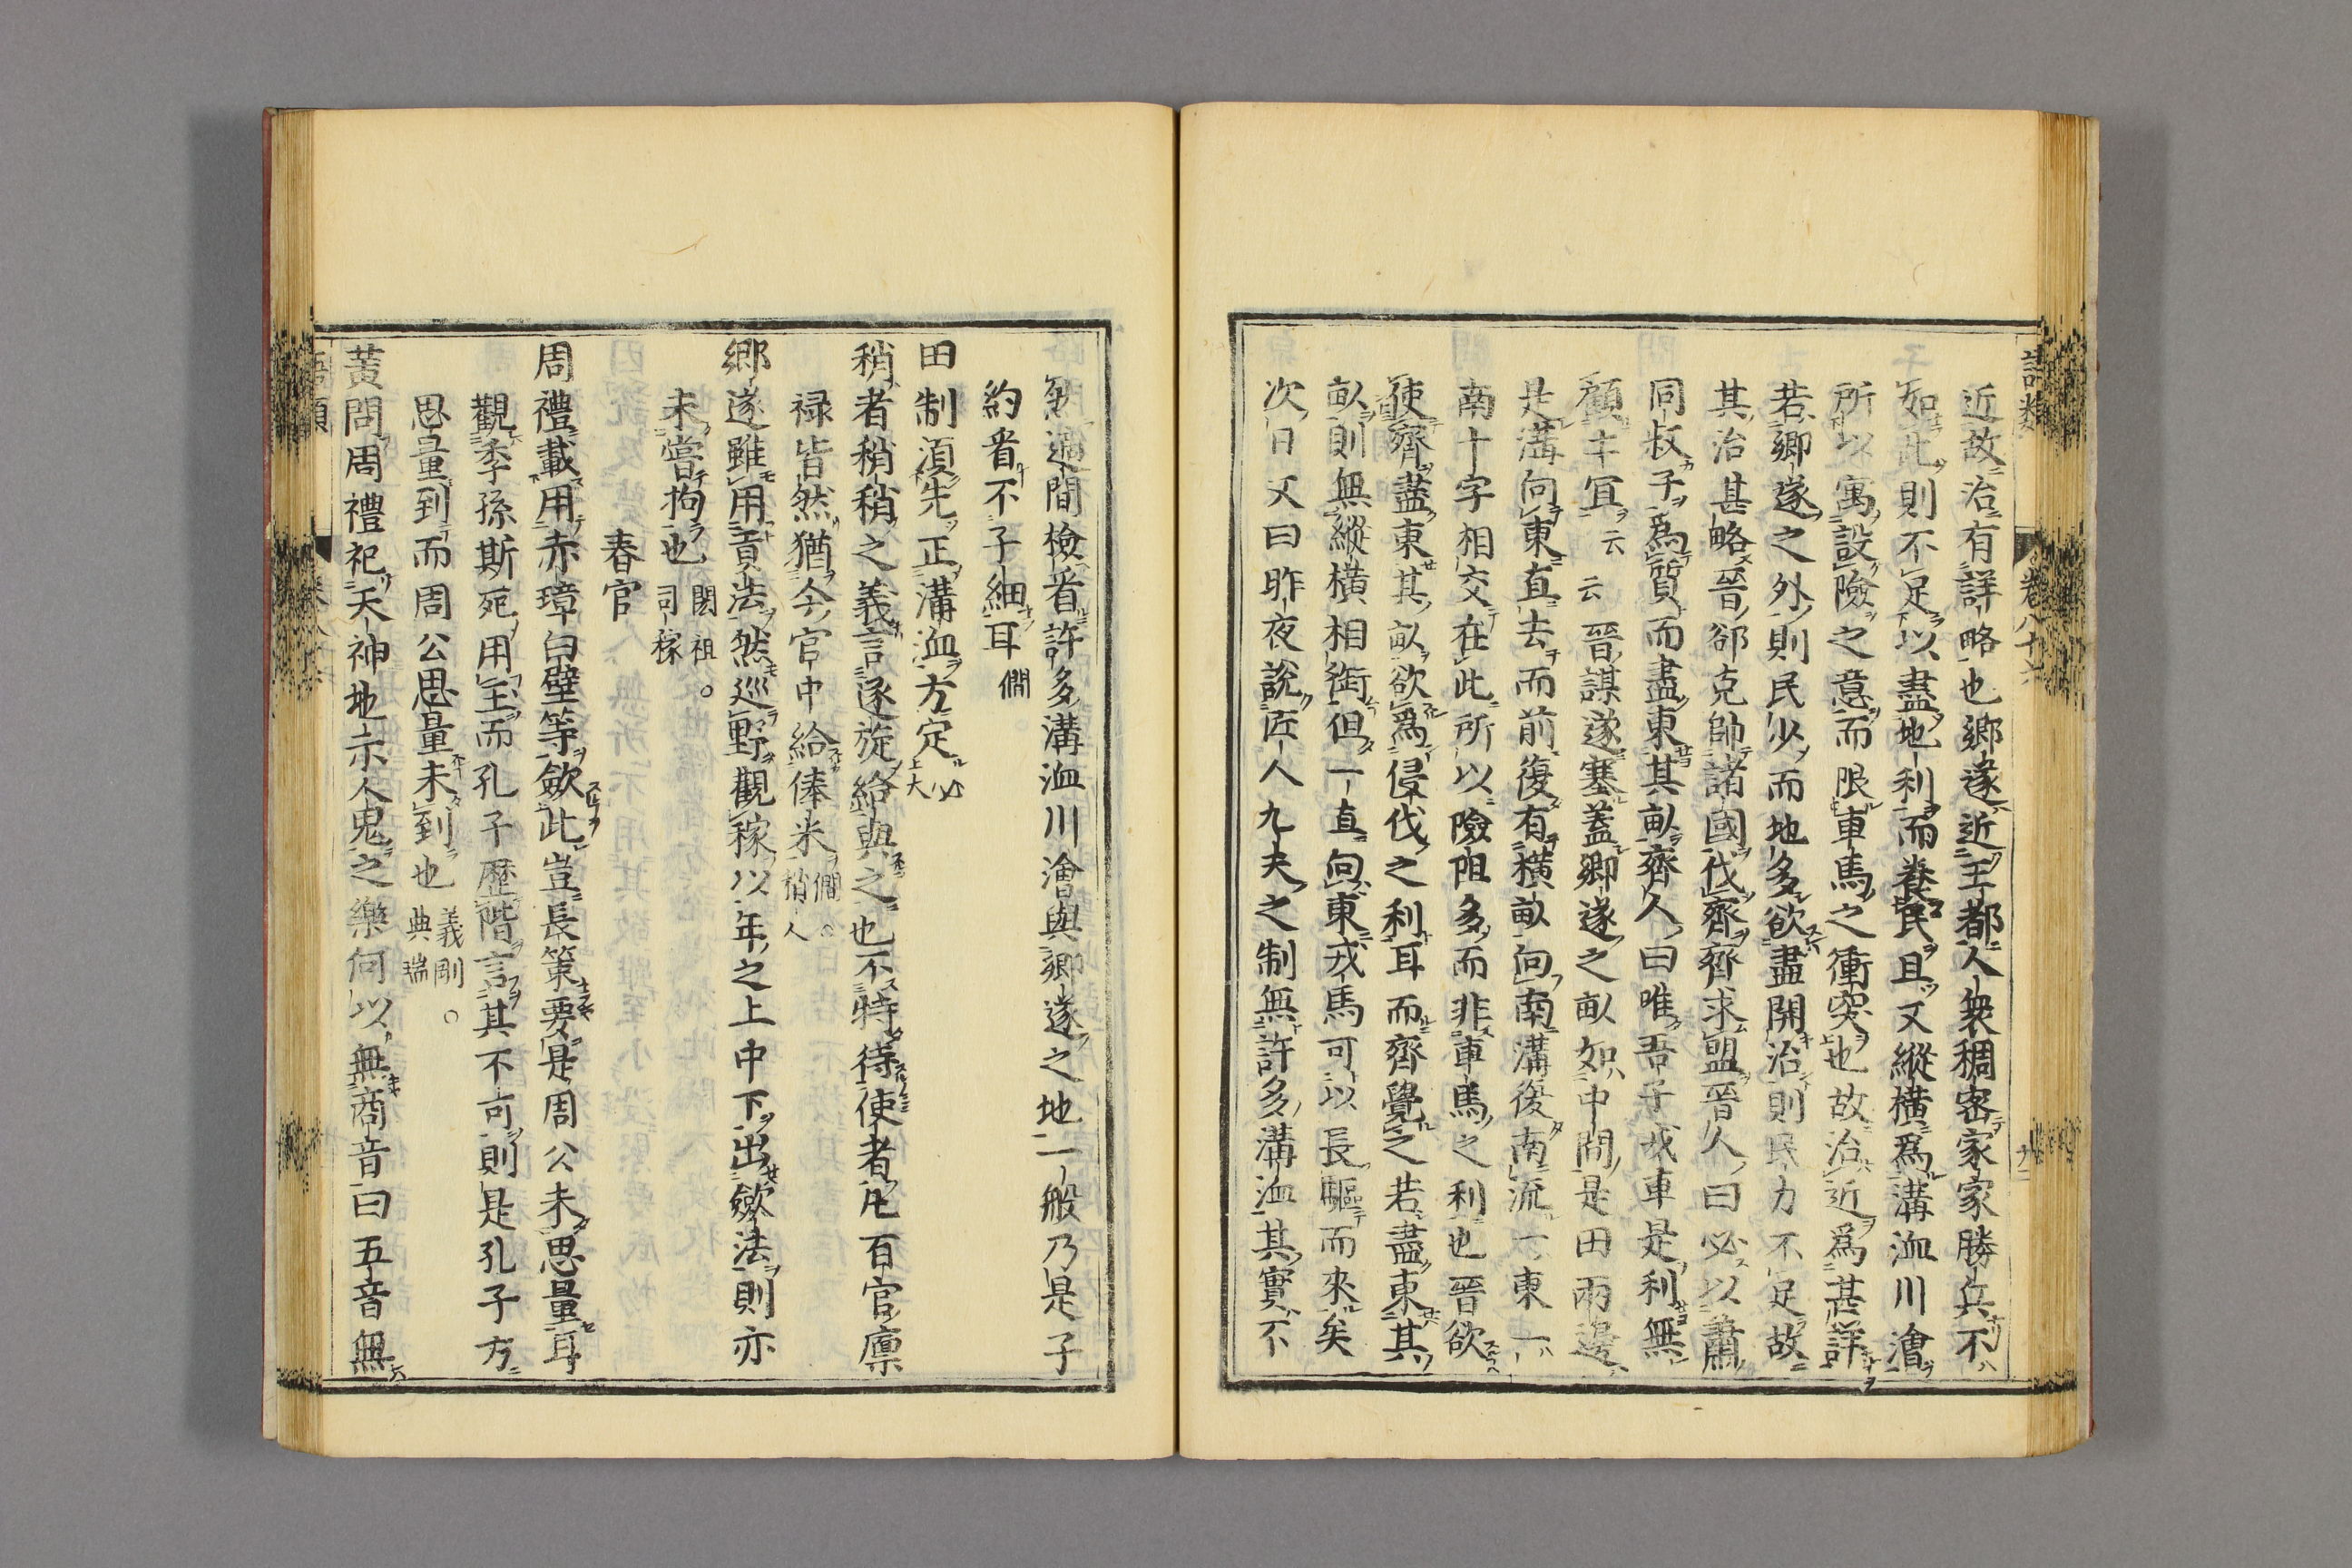 近故治有詳略也鄉遂近王都人衆稠密家家勝兵不
如此則不足以盡地利而養民且又縱橫爲溝洫川澮
所以寓設險之意而限車馬之衝突也故治近爲甚詳
若鄉遂之外則民少而地多欲盡開治則民力不足故
其治甚略晉郤克帥諸國伐齊齊求盟晉人曰必以蕭
同叔子爲質而盡東其畝齊人曰唯吾子戎車是利無
顧土冝云云晉謀遂塞蓋鄉遂之畝如中間是田兩邊
是溝向東直去而前復有橫畝向南溝復南流一東一
南十字相交在此所以險阻多而非車馬之利也晉欲
使齊盡東其畝欲爲侵伐之利耳而齊覺之若盡東其
畝則無縱橫相銜但一直向東戎馬可以長驅而來矣
次日又曰昨夜說匠人九夫之制無許多溝洫其實不
然適間檢看許多溝洫川澮與鄉遂之地一般乃是子
約看不子細耳 僴
田制須先正溝洫方定 必大
稍者稍稍之義言逐旋給與之也不特待使者凡百官廩
禄皆然猶今官中給俸米 僴○稍人
鄉遂雖用貢法然巡野觀稼以年之上中下出斂法則亦
未嘗拘也 閎祖○司稼
春官
周禮載用赤璋白璧等斂此豈長策要是周公未思量耳
觀季孫斯死用玉而孔子歷階言其不可則是孔子方
思量到而周公思量未到也 義剛○典瑞
黃問周禮祀天神地示人鬼之樂何以無商音曰五音無